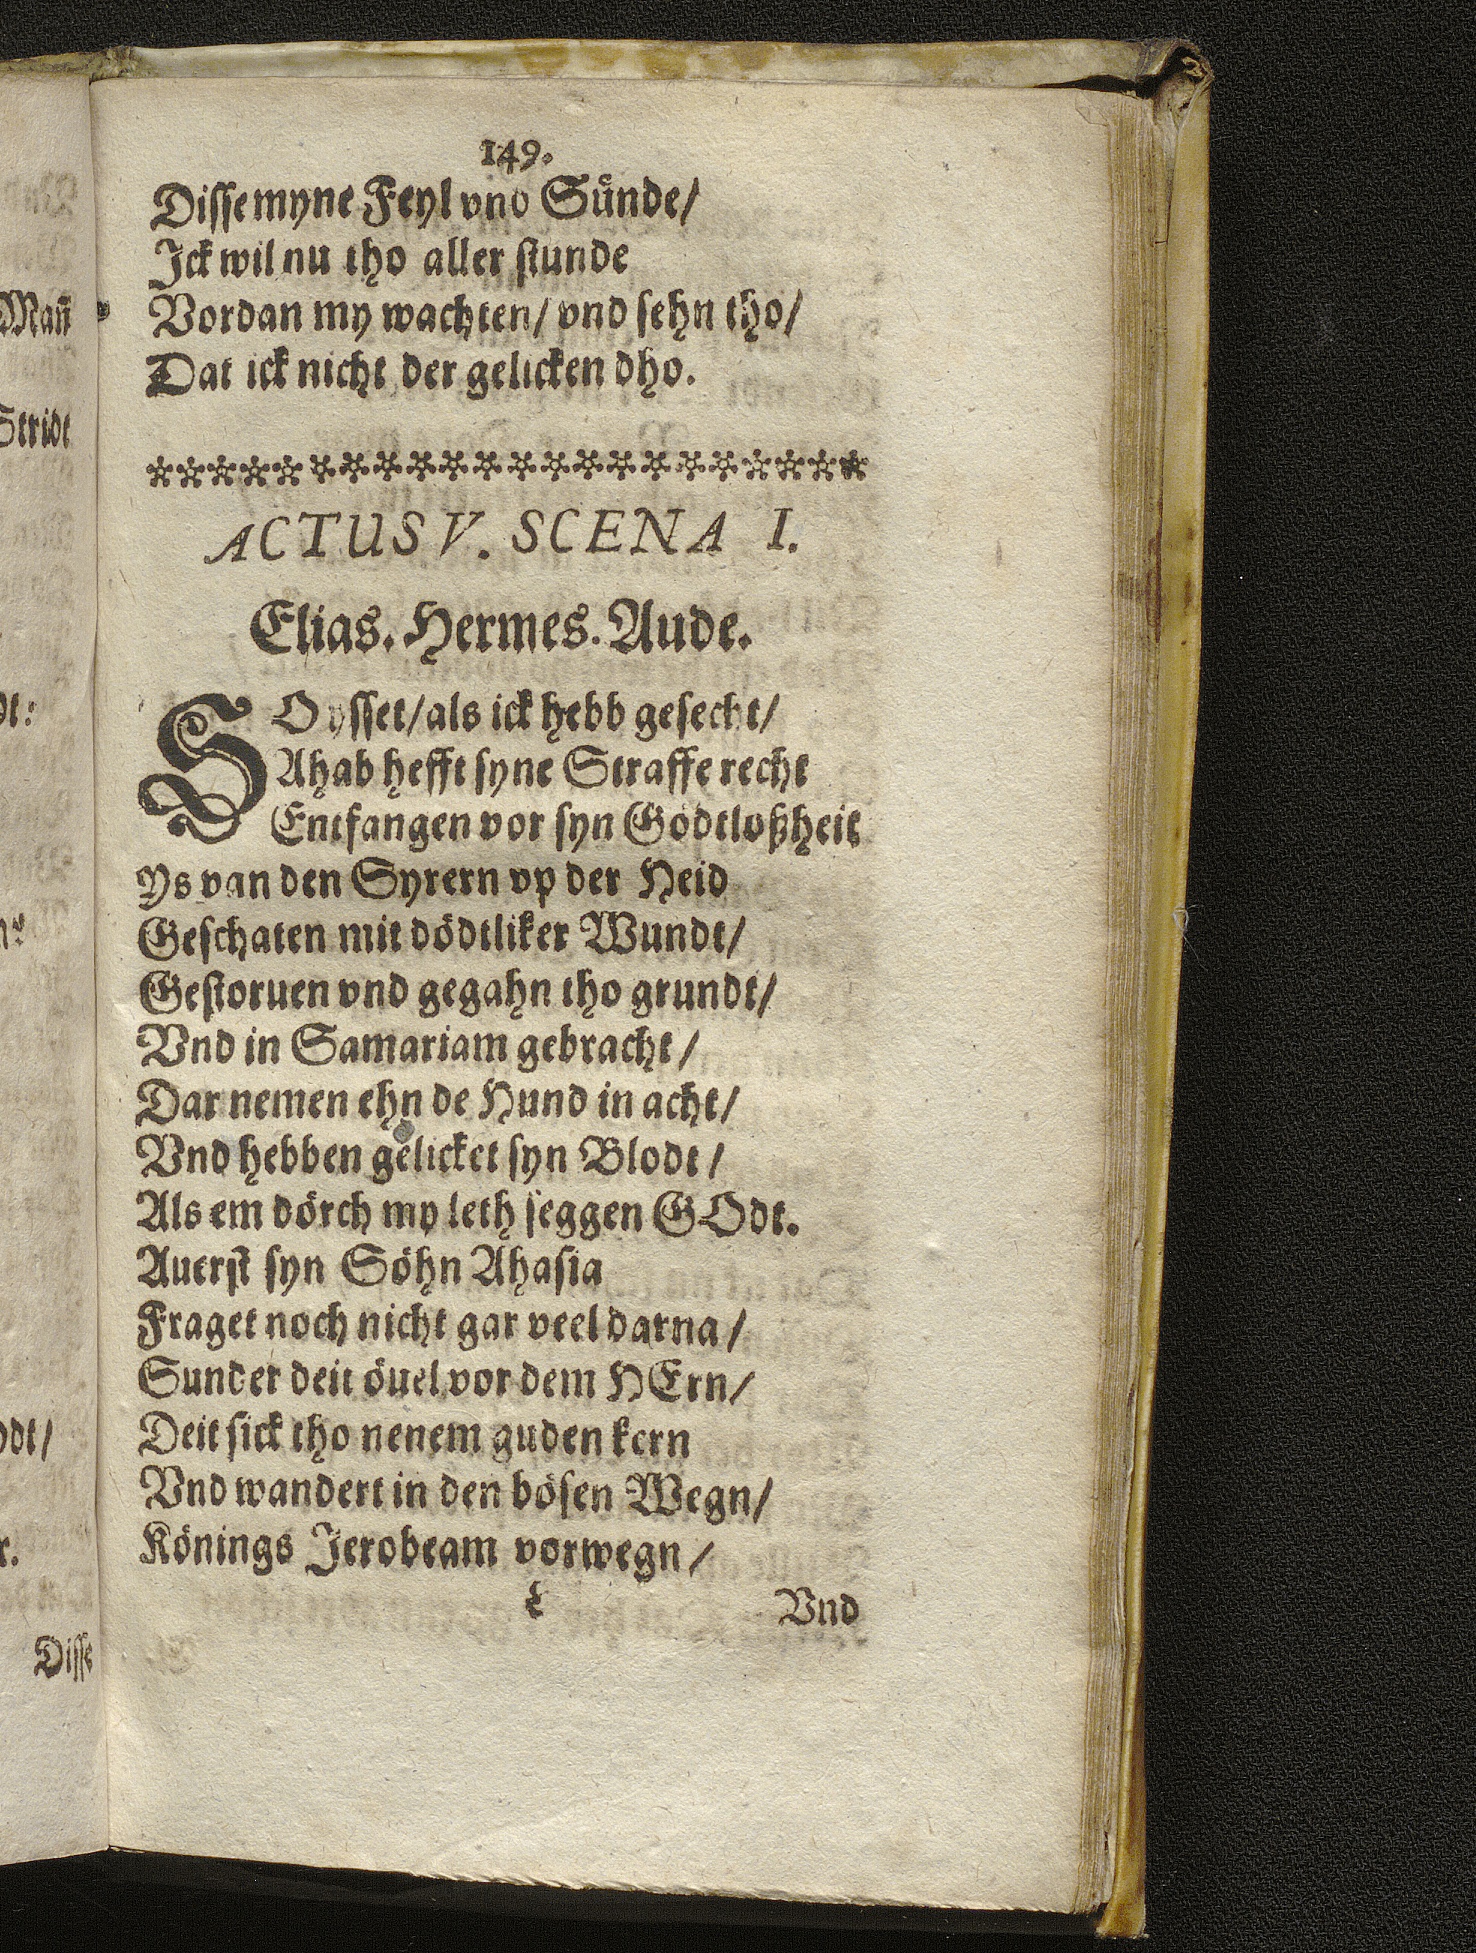 149.
Disse myne Feyl vnd Sünde/
Ick wil nu tho aller stunde
Vordan my wachten/ vnd sehn tho/
Dat ick nicht der gelicken dho.
ACTUS V. SCENA I.
Elias. Hermes. Aude.
SO ysset/ als ick hebb gesecht/
Ahab hefft syne Straffe recht
Entfangen vor syn Godtloßheit
Ys van den Syrern vp der Heid
Geschaten mit dödtliker Wundt/
Gestoruen vnd gegahn tho grundt/
Vnd in Samariam gebracht/
Dar nemen ehn de Hund in acht/
Vnd hebben gelicket syn Blodt/
Als em dörch my leth seggen GOdt.
Auerst syn Söhn Ahasia
Fraget noch nicht gar veel darna/
Sunder deit öuel vor dem HErn/
Deit sick tho nenem guden kern
Vnd wandert in den bösen Wegn/
Könings Jerobeam vorwegn/
Vnd
Mañ
Stridt
dt:
odt/
r.
Disse